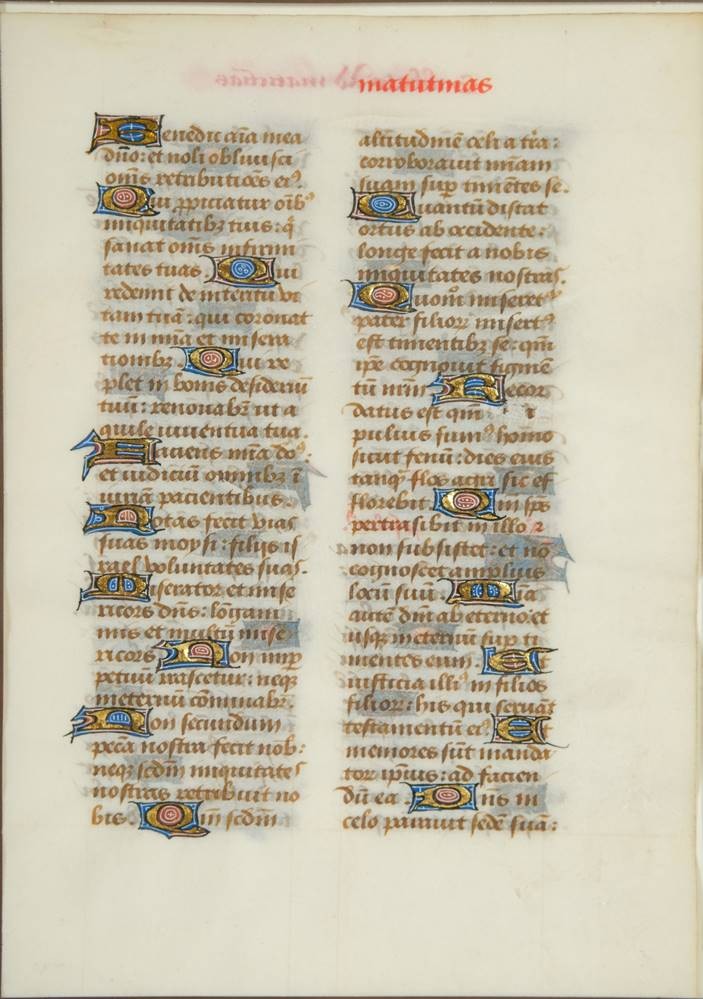 matutinas
Benedic aīa mea
dūo: et noli oblivisci
om̄s retributiōes eiꝰ.
Qui ꝓpiciatur oībꝰ
iniquitatibꝫ tuis: q̄
sanat om̄s infirmi
tates tuas. Qui
redemit de interitu vi
tam tuā: qui coronat
te in mīa et misera
tionibꝫ. Qui re
plet in bonis desideriū
tuū: renovabꝫ ut a
quile iuuentus tua.
Faciens mīa dōs:
et iudiciū omnibꝫ ī
iuriā pacientibus.
Notas fecit vias
suas moysi: filiis is
rael voluntates suas.
Miserator et mise
ricors dn̄s: longani
mis et multū mise
ricors. Non in ꝑp
petuū irascetur: neqꝫ
in eternū cōminabꝫ.
Non secundum
pecā nostra fecit nob:
neqꝫ scdm̄ iniquitates
nostras retribuit no
bis. Qm̄ scdm̄
altitudinē celi a tr̄a:
corroboravit mīam
suam suꝑ timētes se.
Quantū distat
ortus ab occidente:
longe fecit a nobis
iniquitates nostras.
Quom̄ miseretꝰ
pater filiorꝫ misertꝰ
est timentibꝫ se: qm̄
ipē cognovit figmē
tū nr̄m Recor
datus est qm̄
pulvis sumꝰ homo
sicut fenū: dies eius
tanqꝫ flos agri sic ef
florebit. Qm̄ sp̄s
pertransibit in illo ⁊
non subsistet: et nō
cognoscet amplius
locū suū. Mīa
autē dn̄i ab eterno: et
usqꝫ in eternū suꝑ ti
mentes eum. Et
iusticia illiꝰ in filios
filiorꝫ: his qui servāt
testamentū eiꝰ. Et
memores sūt manda
torꝫ ipsius: ad facien
dū ea. Dn̄s in
celo paravit sedē suā: